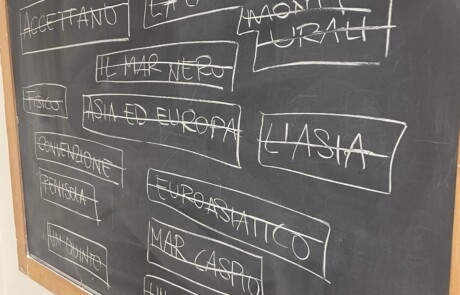 ACCETTANO
MONTI
URALI
IL MAR NERO
FISICO
ASIA ED EUROPA
L'ASIA
CONVENZIONE
PENISOLA
EUROASIATICO
UN QUINTO
MAR CASPIO